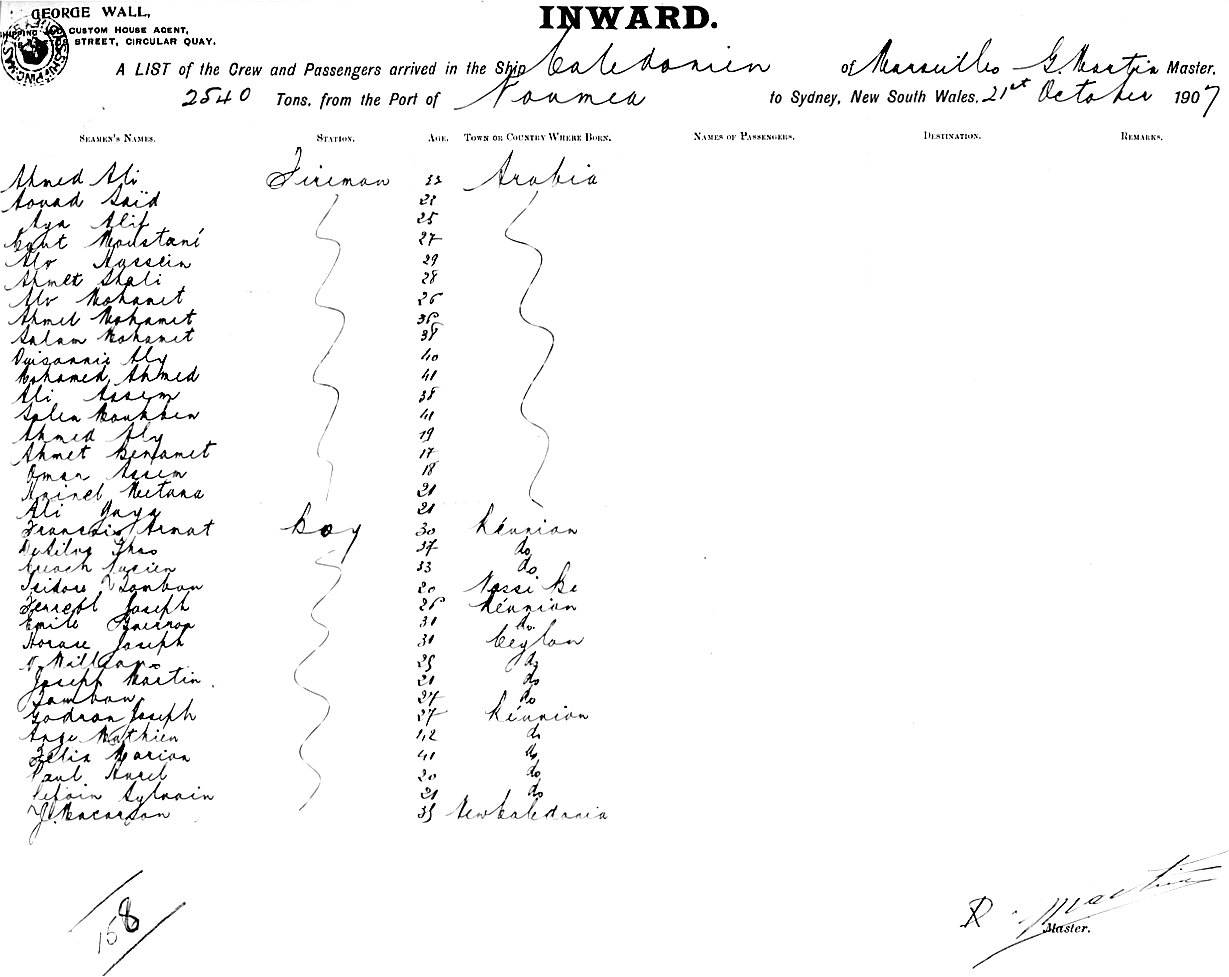 GEORGE WALL,
CUSTOM HOUSE AGENT,
STREET, CIRCULAR QUAY.
INWARD.
A LIST of the Crew and Passengers arrived in the Ship Caledonien of Marseilles G. Martin Master,
2540 Tons, from the Port of Noumea to Sydney, New South Wales, 21st October 1907
SEAMEN'S NAMES. STATION. AGE. TOWN OR COUNTRY WHERE BORN. NAMES OF PASSENGERS. DESTINATION. REMARKS.
Ahmed Ali Fireman Arabia
Aouad Saïd
Aya Alif 25
Moustani 27
Alo Hussein 29
Ahmet Shali 28
Alo Mohamet 26
Ahmet Mohamet
Salam Mohamet 38
Aly 40
Mohamed Ahmed 41
Ali Assem 38
Salem 41
Ahmed Aly 19
Ahmet Benjamet 17
Oman Assem 18
21
Ali Yaya 21
François Armat Boy 30 Réunion
DaSilva 37 do
Lucien 33 do
Isidore Zambou 20 Nossi Be
Joseph 26 Réunion
Emile 31 do
Horace Joseph 31 Ceylon
William 25 do
Joseph Martin 21 do
Zambou 27 do
Godran Joseph 27 Réunion
Ange Mathieu 42 do
Félix Marion 41 do
Paul Aurel 20 do
Sylvain 21 do
35 New Caledonia
158
R Martin
Master.